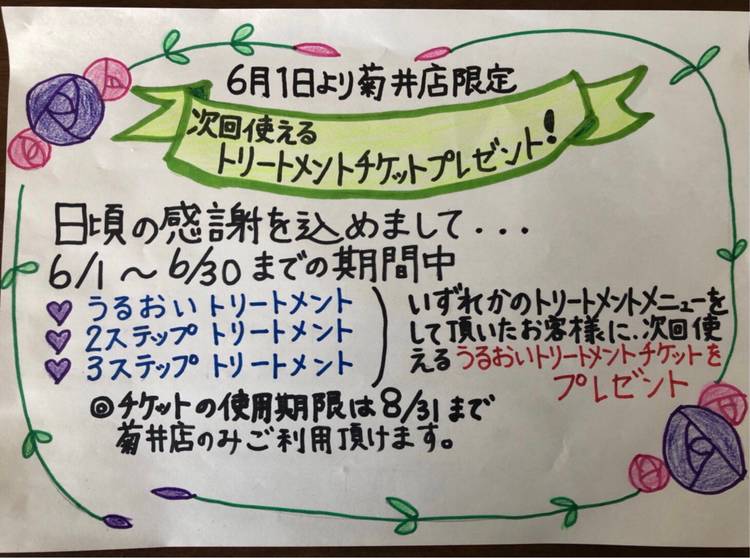 6月1日より菊井店限定
次回使える
トリートメントチケットプレゼント!
日頃の感謝を込めまして...
6/1～6/30までの期間中
うるおいトリートメント
2ステップトリートメント
3ステップトリートメント
いずれかのトリートメントメニューを
して頂いたお客様に、次回使
えるうるおいトリートメントチケットを
プレゼント
◎チケットの使用期限は8/31まで
菊井店のみご利用頂けます。